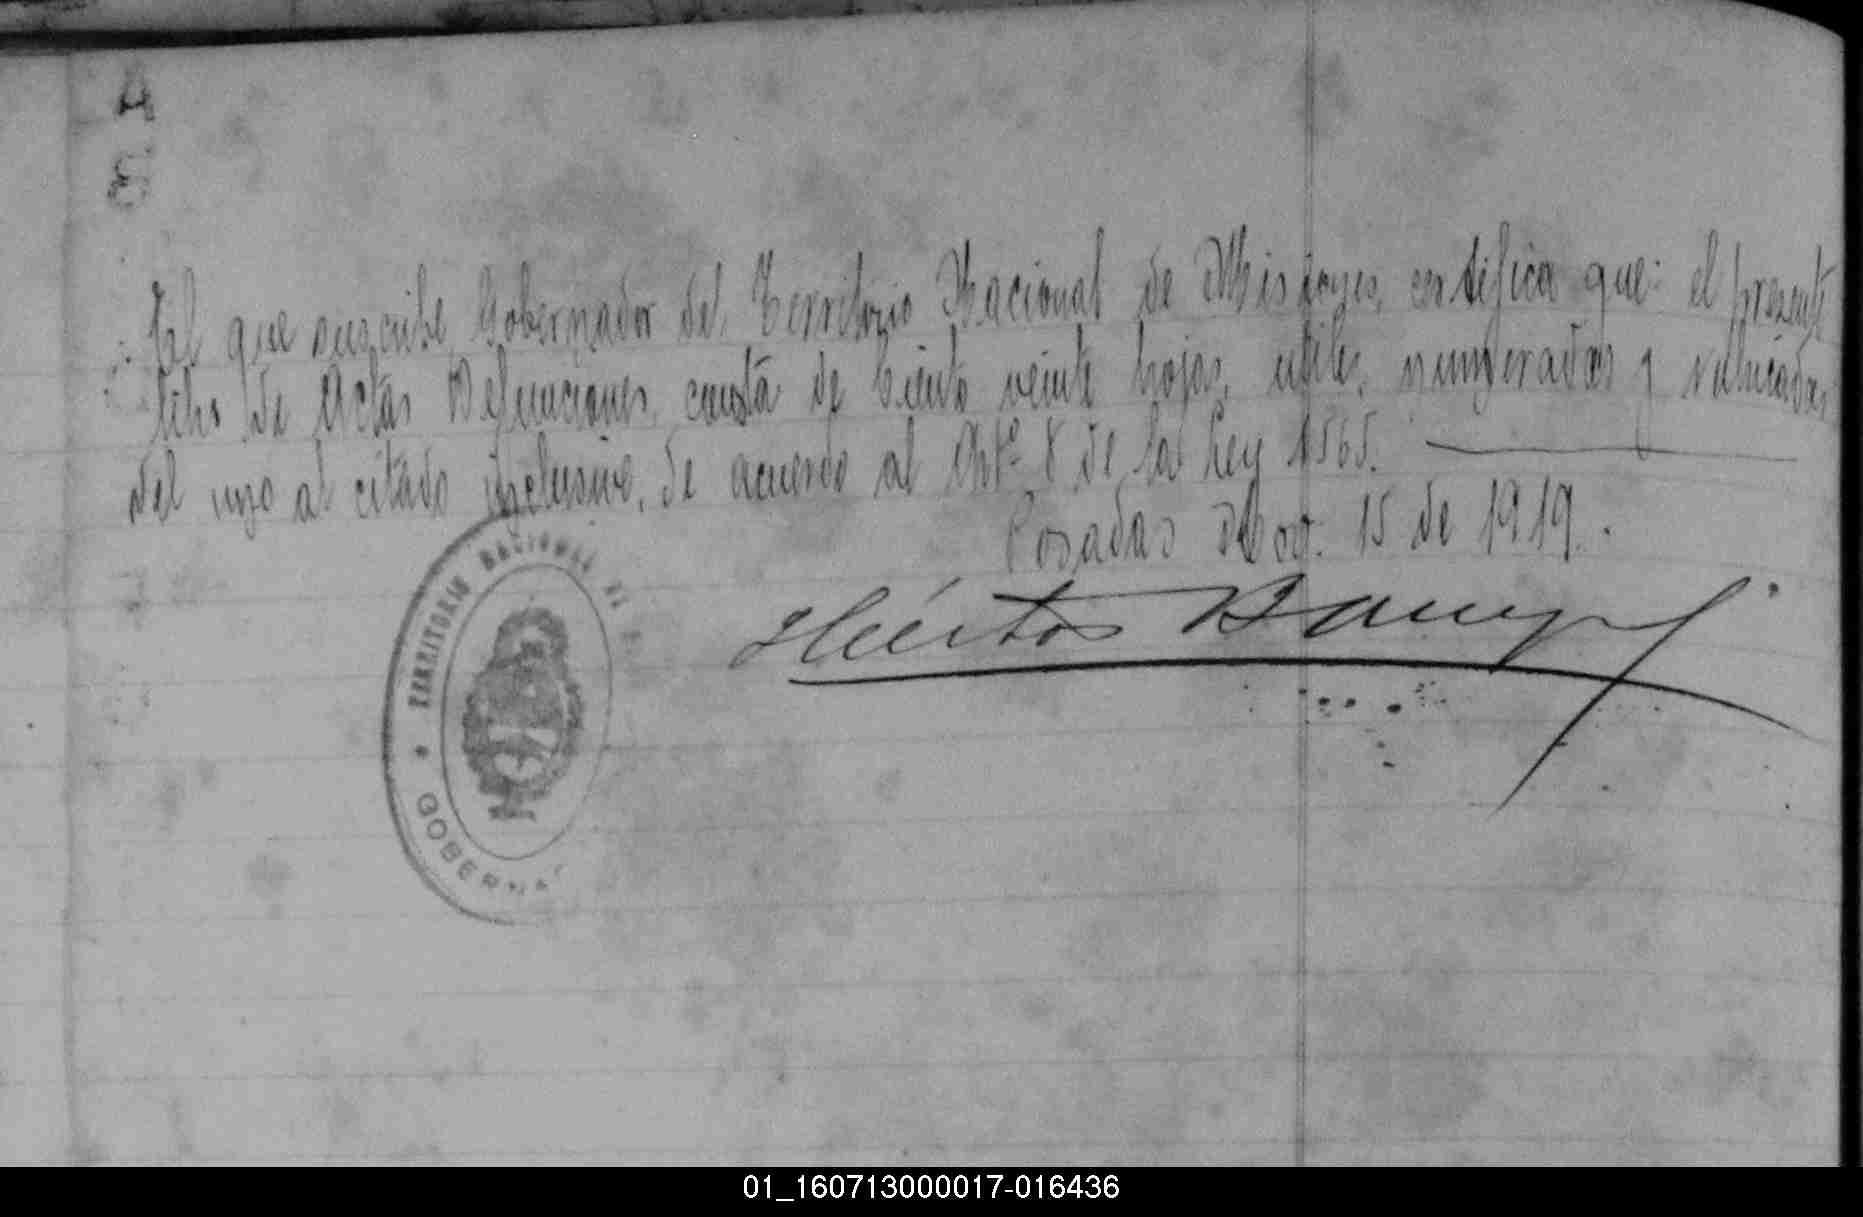 A
El que suscribe, Gobernador del Territorio Nacional de Misiones, certifica que: el presente
libro de Actas Defunciones, consta de Ciento veinte hojas, utiles, numeradas y rubricadas
del uno al citado inclusive, de acuerdo al Artº 8 de la Ley 1565.
Posadas Nov. 15 de 1919.
Héctor
TERRITORIO NACIONAL DE
GOBERNA
01_160713000017-016436